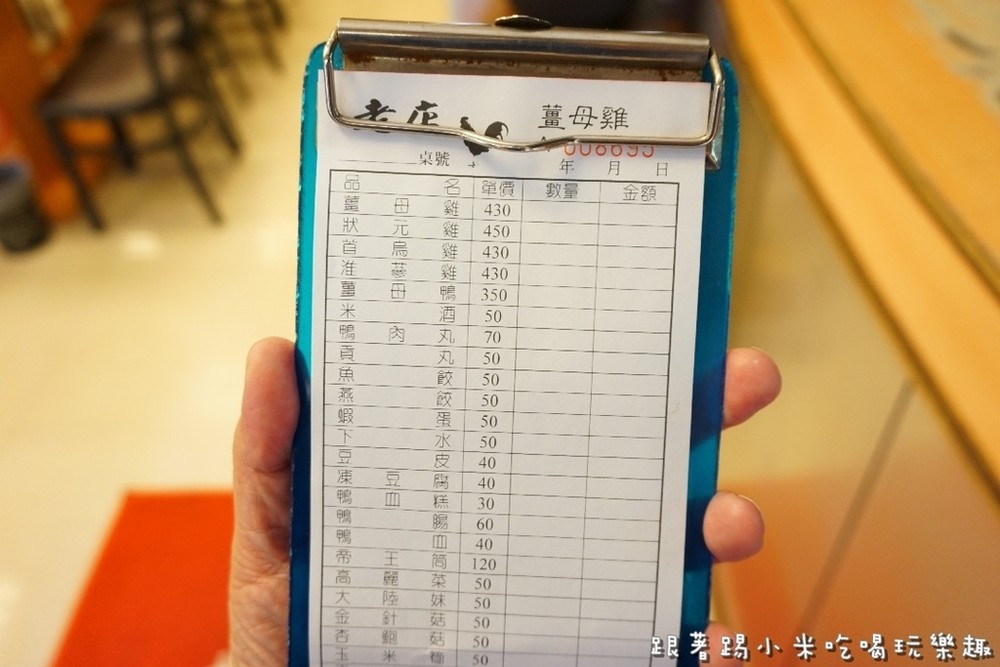 老店
薑母雞
008695
桌號 年 月 日
品名 單價 數量 金額
薑母雞 430
狀元雞 450
首烏雞 430
淮蔘雞 430
薑母鴨 350
米酒 50
鴨肉丸 70
貢丸 50
魚餃 50
燕餃 50
蝦蛋 50
下水 50
豆皮 40
凍豆腐 40
鴨血糕 30
鴨腸 60
鴨血 40
帝王筒 120
高麗菜 50
大陸妹 50
金針菇 50
杏鮑菇 50
玉米 50
跟著踢小米吃喝玩樂趣